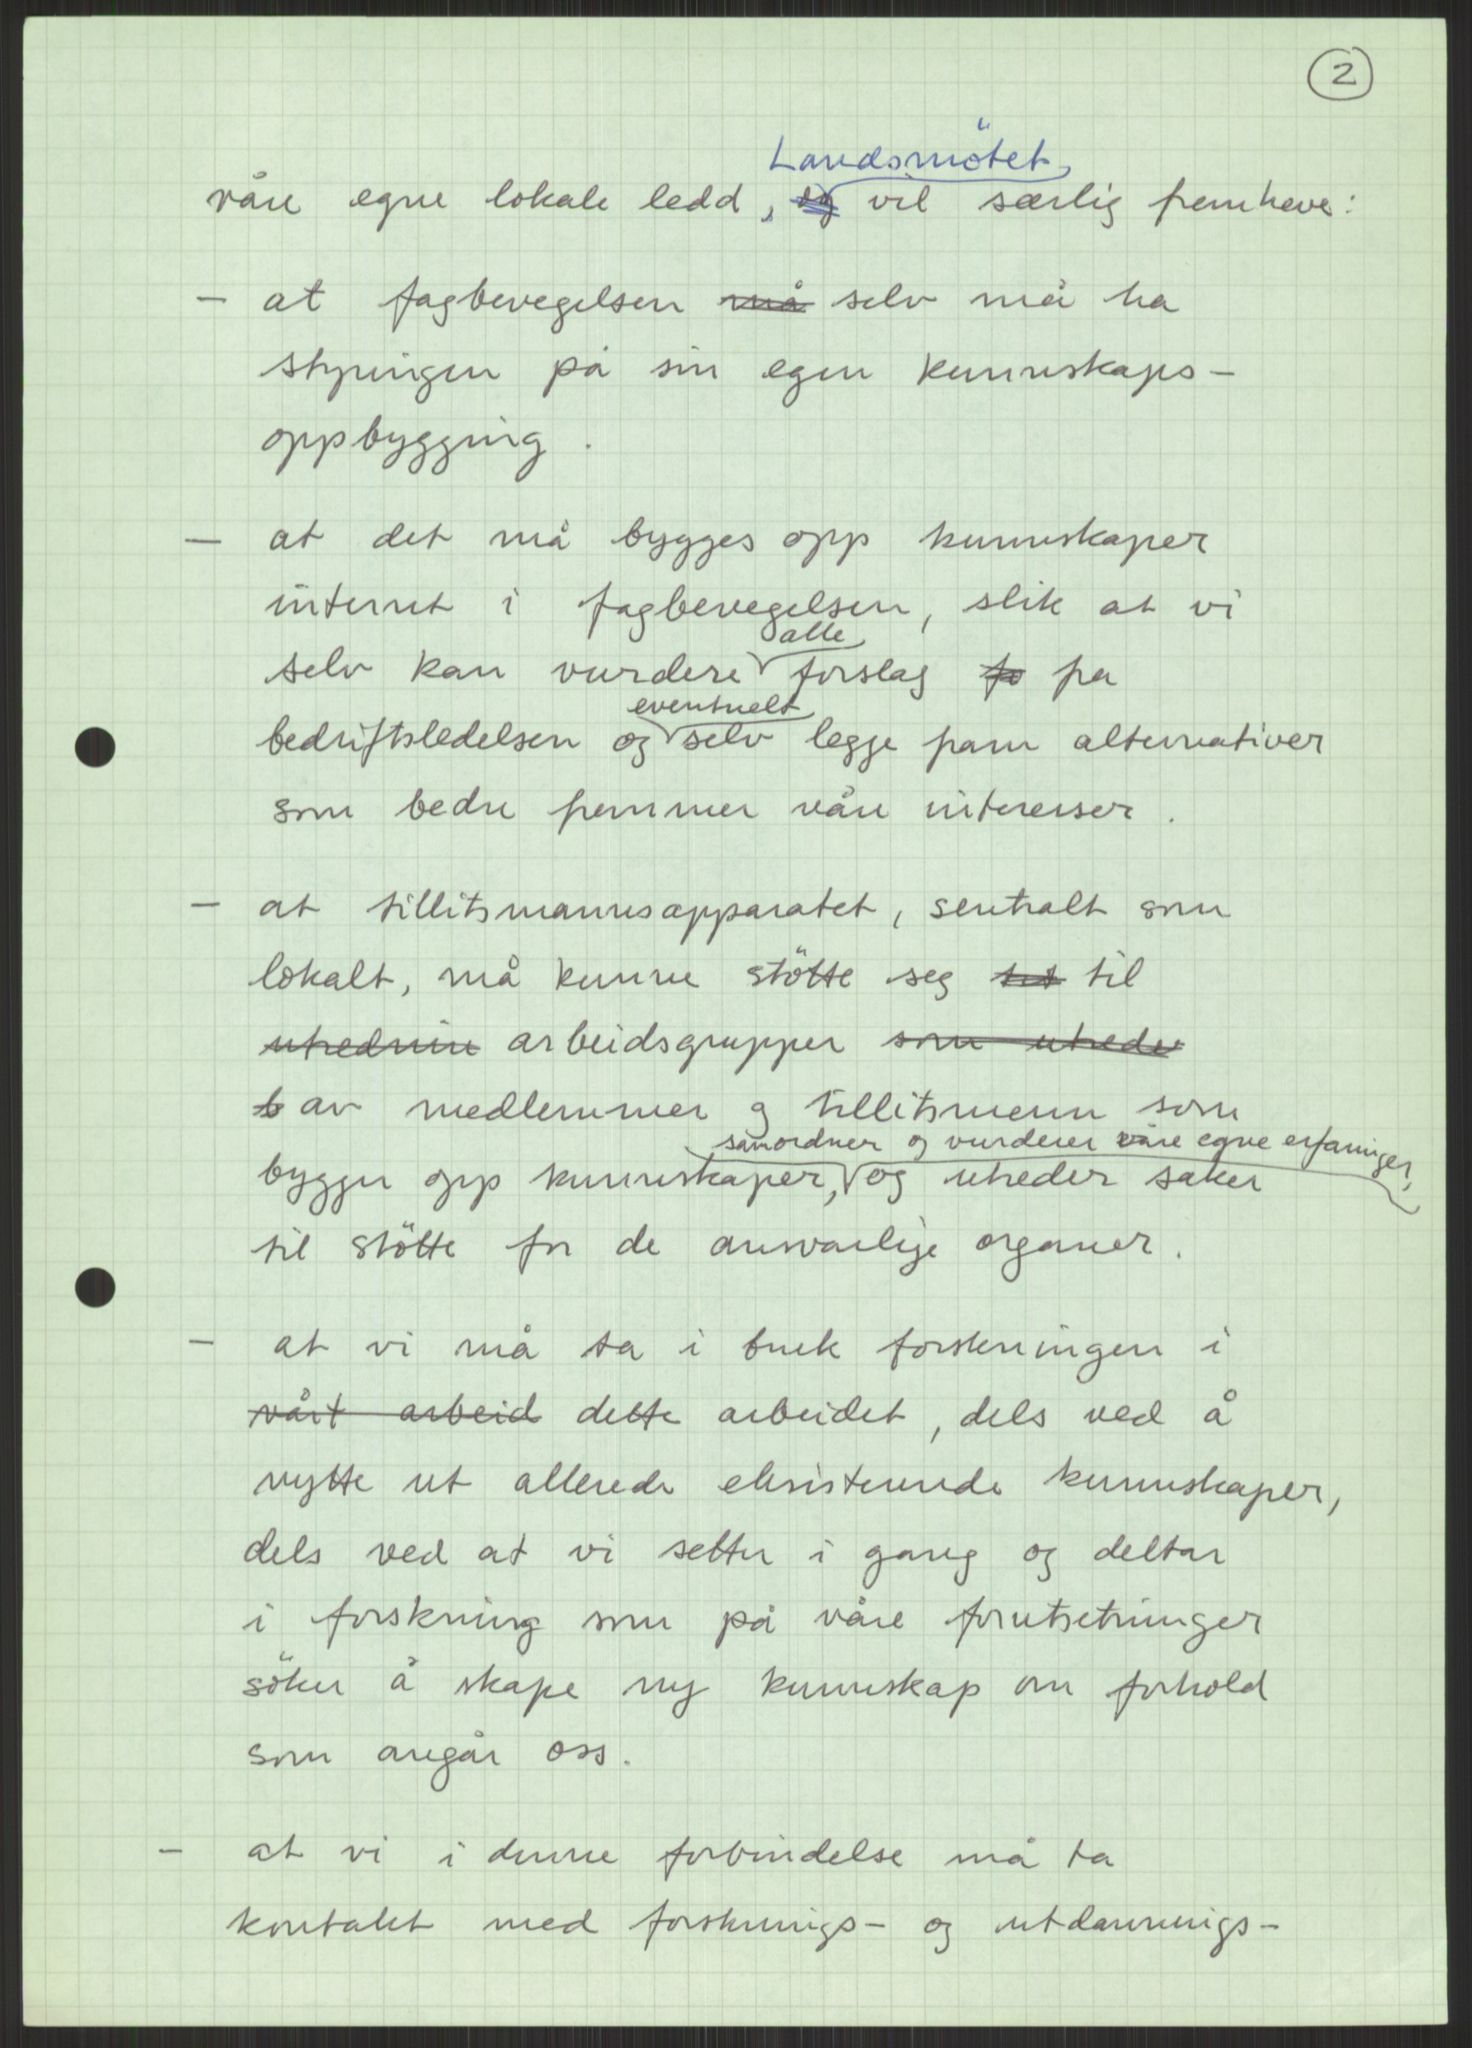 2
Landsmötet
våre egne lokale ledd, og vil særlig fremheve:
- at fagbevegelsen må selv må ha
styringen på sin egen kunnskaps-
oppbygging.
- at det må bygges opp kunnskaper
internt i fagbevegelsen, slik at vi
alle
selv kan vurdere forslag fo fra
eventuelt
bedriftsledelsen og selv legge fram alternativer
som bedre fremmer våre interesser.
- at tillitsmannsapparatet, sentralt som
lokalt, må kunne stötte seg til
utrednin arbeidsgrupper som utreder
av medlemmer og tillitsmenn som
samordner og vurderer våre egne erfaringer,
bygger opp kunnskaper, og utreder saker
til stötte for de ansvarlige organer.
- at vi må ta i bruk forskningen i
vårt arbeid dette arbeidet, dels ved å
nytte ut allerede eksisterende kunnskaper,
dels ved at vi setter i gang og deltar
i forskning som på våre forutsetninger
söker å skape ny kunnskap om forhold
som angår oss.
- at vi i denne forbindelse må ta
kontakt med forsknings- og utdannings-